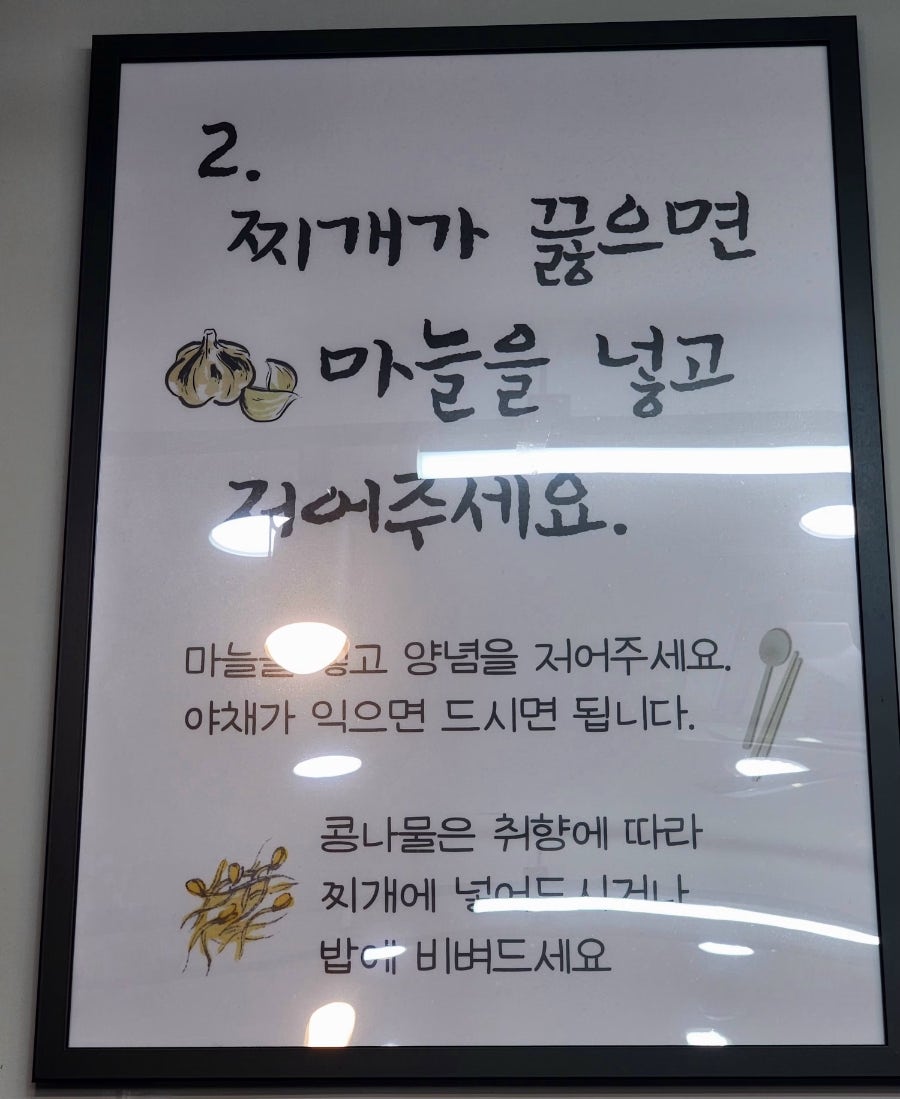 2.
찌개가 끓으면
마늘을 넣고
저어주세요.
마늘을 넣고 양념을 저어주세요.
야채가 익으면 드시면 됩니다.
콩나물은 취향에 따라
찌개에 넣어드시거나
밥에 비벼드세요